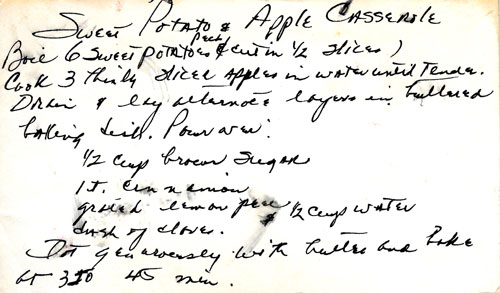 Sweet Potato & Apple Casserole
Boil 6 Sweet Potatoes (Peel & cut in 1/2 slices)
Cook 3 thinly sliced apples in water until tender.
Drain & lay alternate layers in buttered
baking dish. Pour over:
1/2 cup brown sugar
1 t. cinnamon
grated lemon peel & 1/2 cup water
dash of cloves.
Dot generously with butter and bake
at 350 45 min.